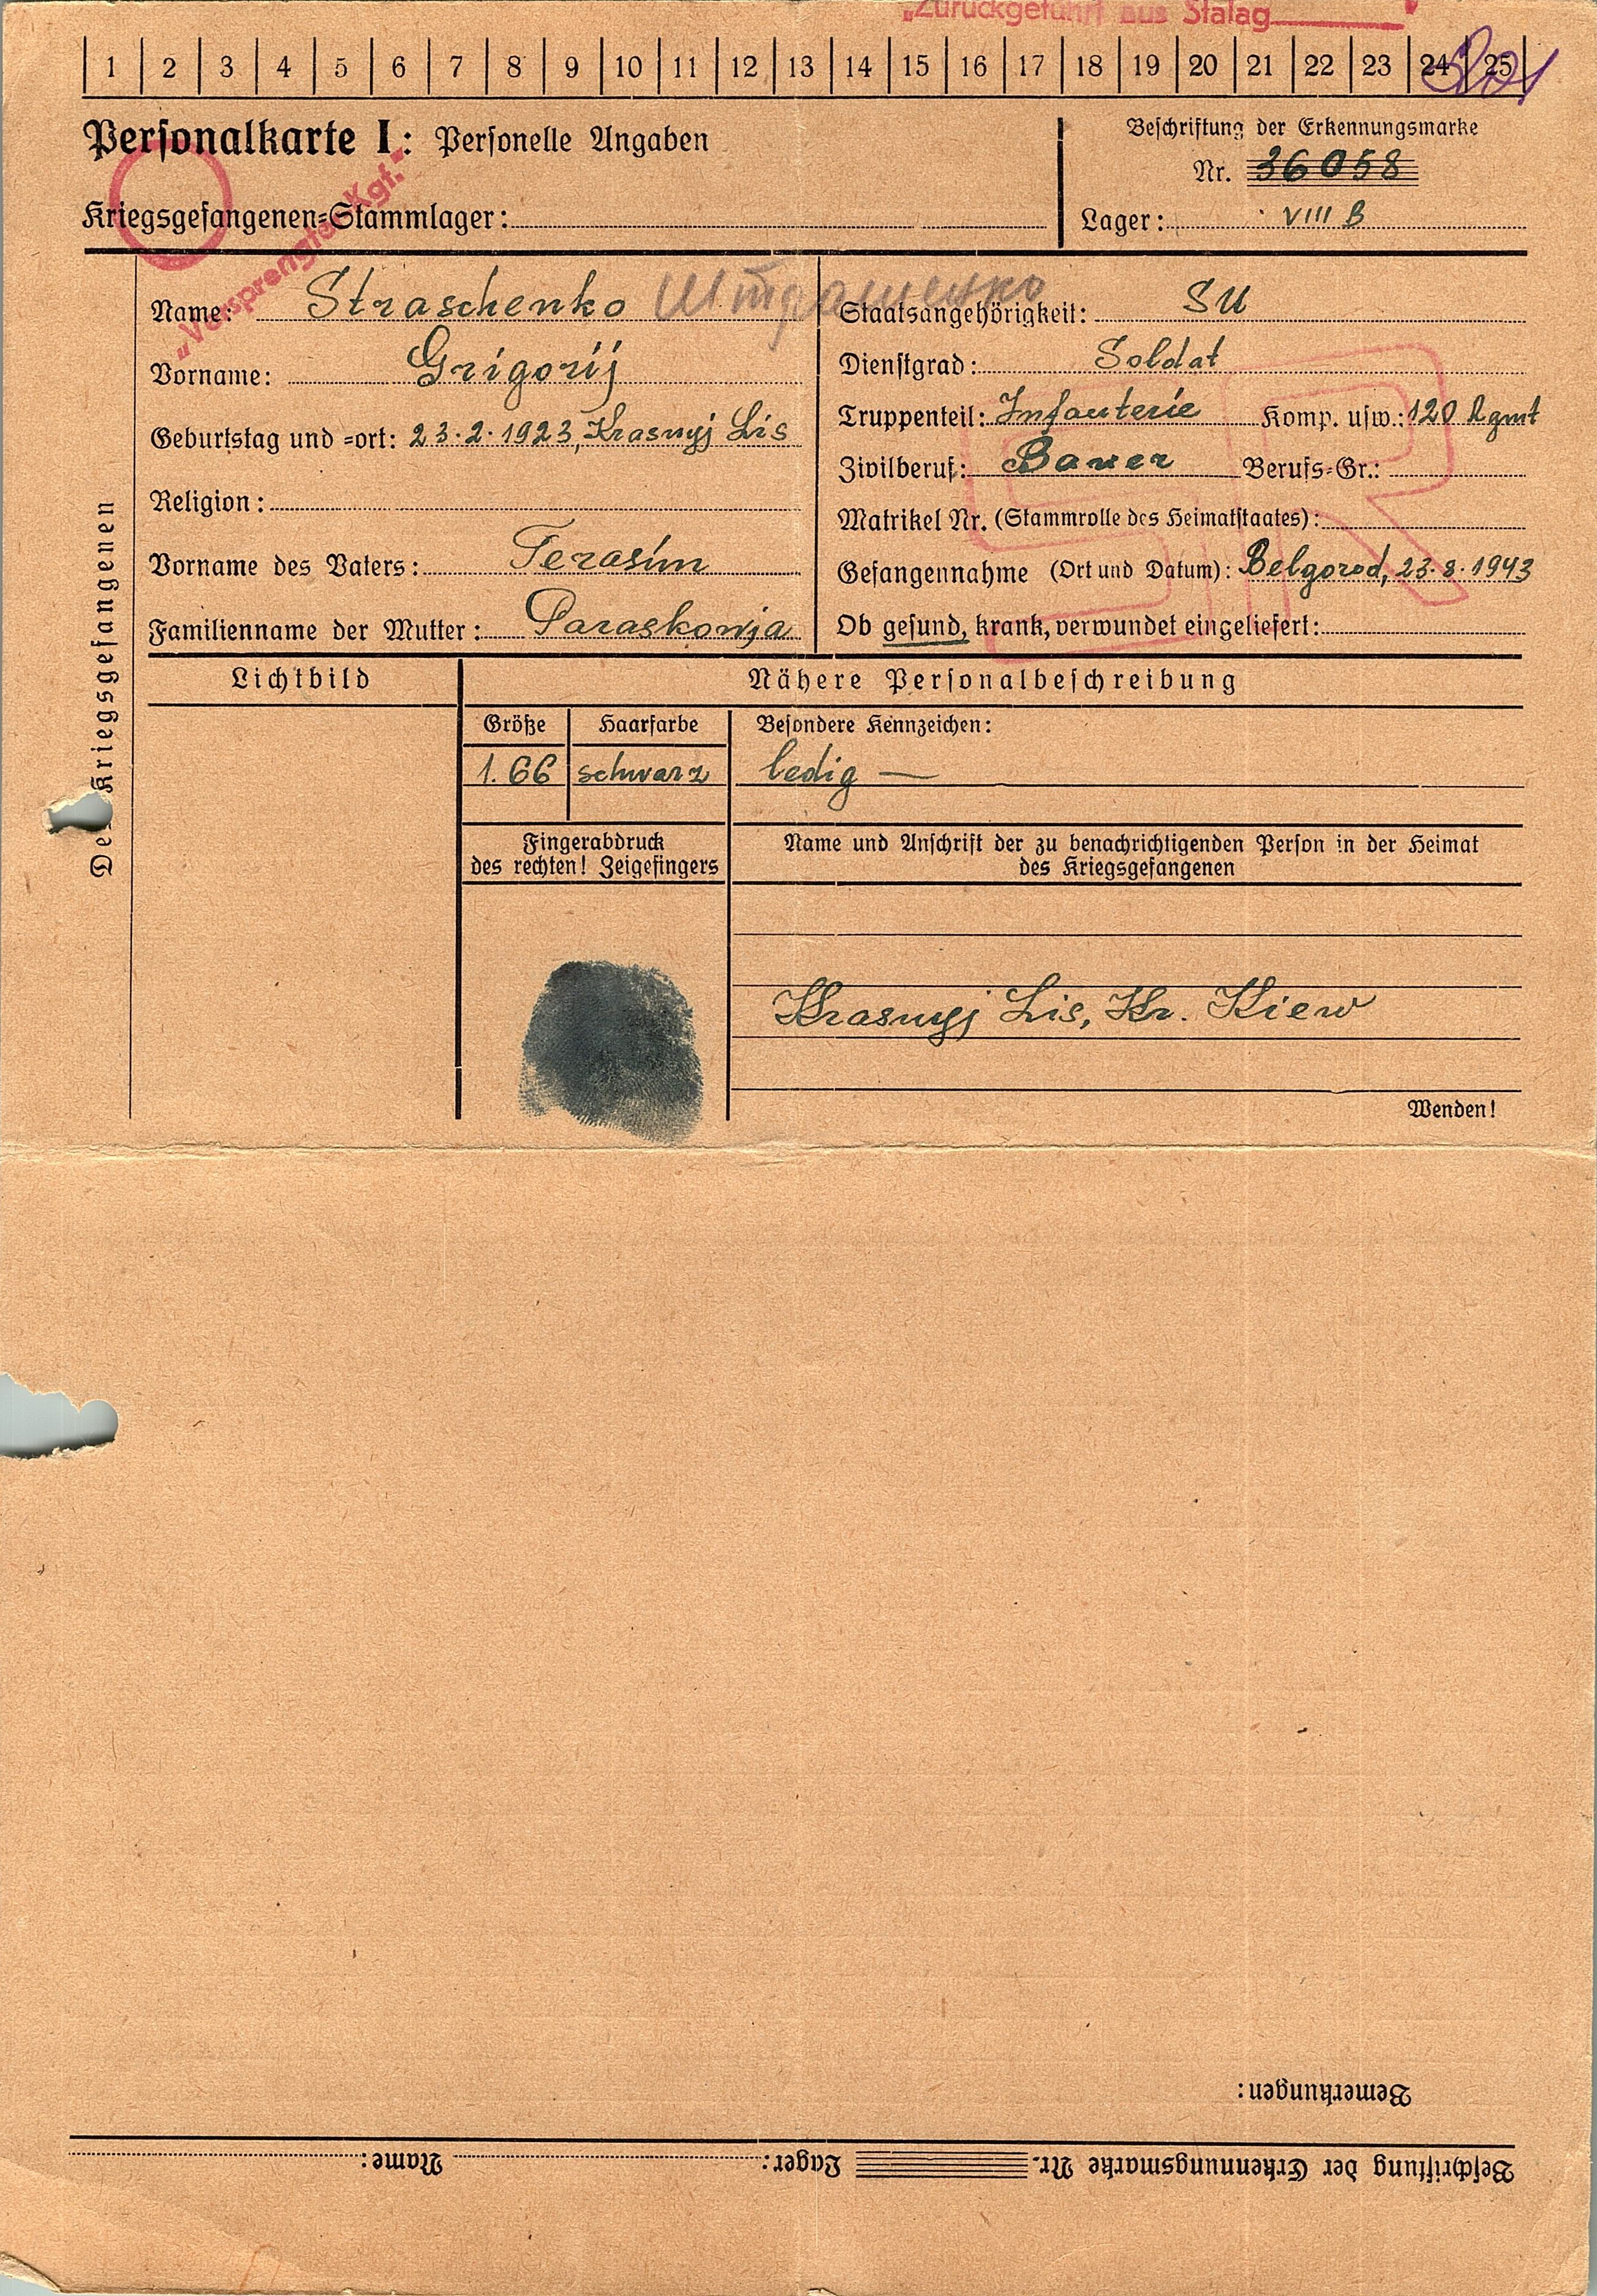 „Zurückgeführt aus Stalag
1 2 3 4 5 6 7 8 9 10 11 12 13 14 15 16 17 18 19 20 21 22 23 24 25
Personalkarte I: Personelle Angaben
Beschriftung der Erkennungsmarke
Nr. 36058
Kriegsgefangenen=Stammlager:
Lager: VIII B
„Versprengter Kgf."
Des Kriegsgefangenen
Name: Straschenko Штрашенко
Vorname: Grigorij
Geburtstag und =ort: 23.2.1923, Krasnyj Lis
Religion:
Vorname des Vaters: Terasim
Familienname der Mutter: Paraskowja
Staatsangehörigkeit: SU
Dienstgrad: Soldat
Truppenteil: Infanterie Komp. usw.: 120 Rgmt
Zivilberuf: Bauer Berufs=Gr.:
Matrikel Nr. (Stammrolle des Heimatstaates):
Gefangennahme (Ort und Datum): Belgorod, 23.8.1943
Ob gesund, krank, verwundet eingeliefert:
SR
Lichtbild
Nähere Personalbeschreibung
Größe Haarfarbe Besondere Kennzeichen:
1.66 schwarz ledig —
Fingerabdruck
des rechten! Zeigefingers
Name und Anschrift der zu benachrichtigenden Person in der Heimat
des Kriegsgefangenen
Krasnyj Lis, Kr. Kiew
Wenden!
Bemerkungen:
Beschriftung der Erkennungsmarke Nr. Lager: Name: